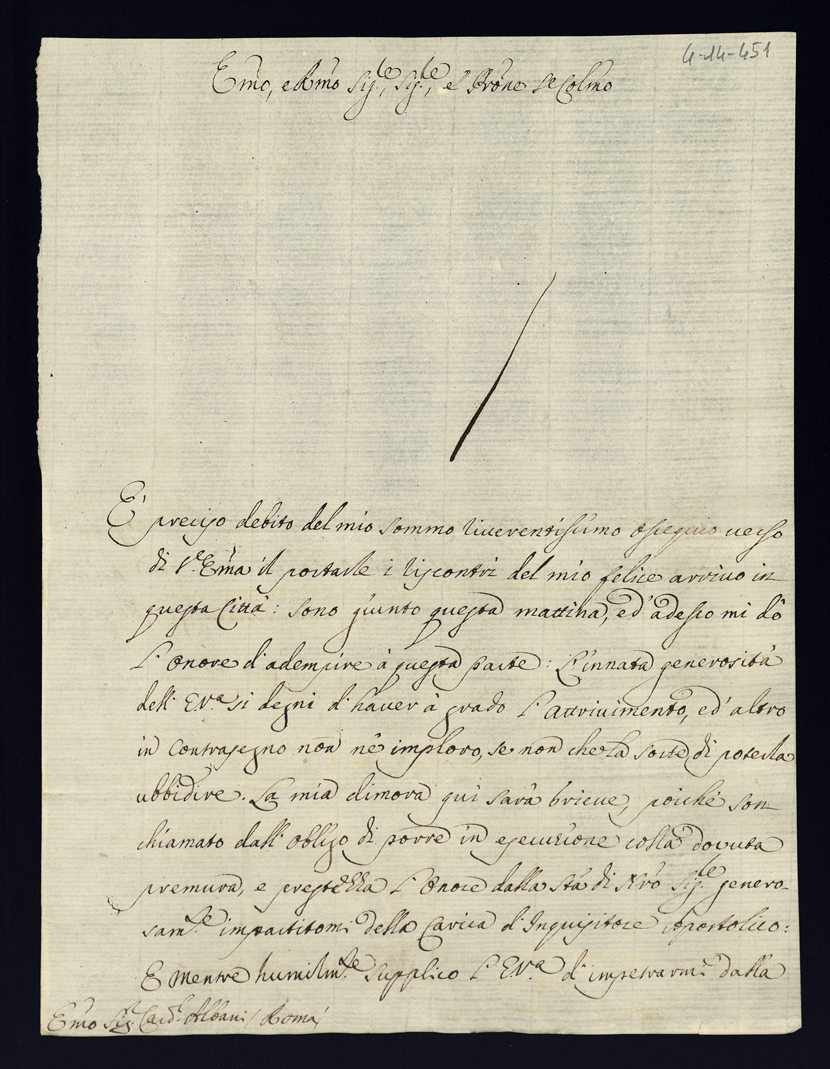 4-14-451
Emo, e Rmo Sig.re, Sig.re, e Prone Se Colmo
E' preciso debito del mio sommo riverentissimo ossequio verso
di V.ra Em̃a il portarle i riscontri del mio felice arrivo in
questa Città: sono giunto questa mattina, ed' adesso mi dò
l'onore d'adempire à questa parte: L'innata generosità
dell' E.V.ra si degni d'haver à grado l'attrivimento, ed' altro
in contrasegno non ne imploro, se non che la sorte di poterla
ubbidire. La mia dimora qui sarà brieve, poiché son
chiamato dall' obligo di porre in esecuzione colla dovuta
premura, e prestezza l'onore dalla Stà di Nrõ Sig.re genero-
sam.te impartitomi della Carica d'Inquisitore Apostolico:
E mentre humilm.te supplico l'E.V.ra d'impetrarmi dalla
Em̃o Sig. Card. Albani / Roma /